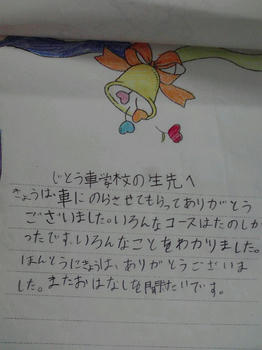 じとう車学校の生先へ
きょうは、車にのらさせてもらってありがとう
ございました。いろんなコースはたのしか
ったです。いろんなことをわかりました。
ほんとうにきょうは、ありがとうございま
した。またおはなしを聞たいです。